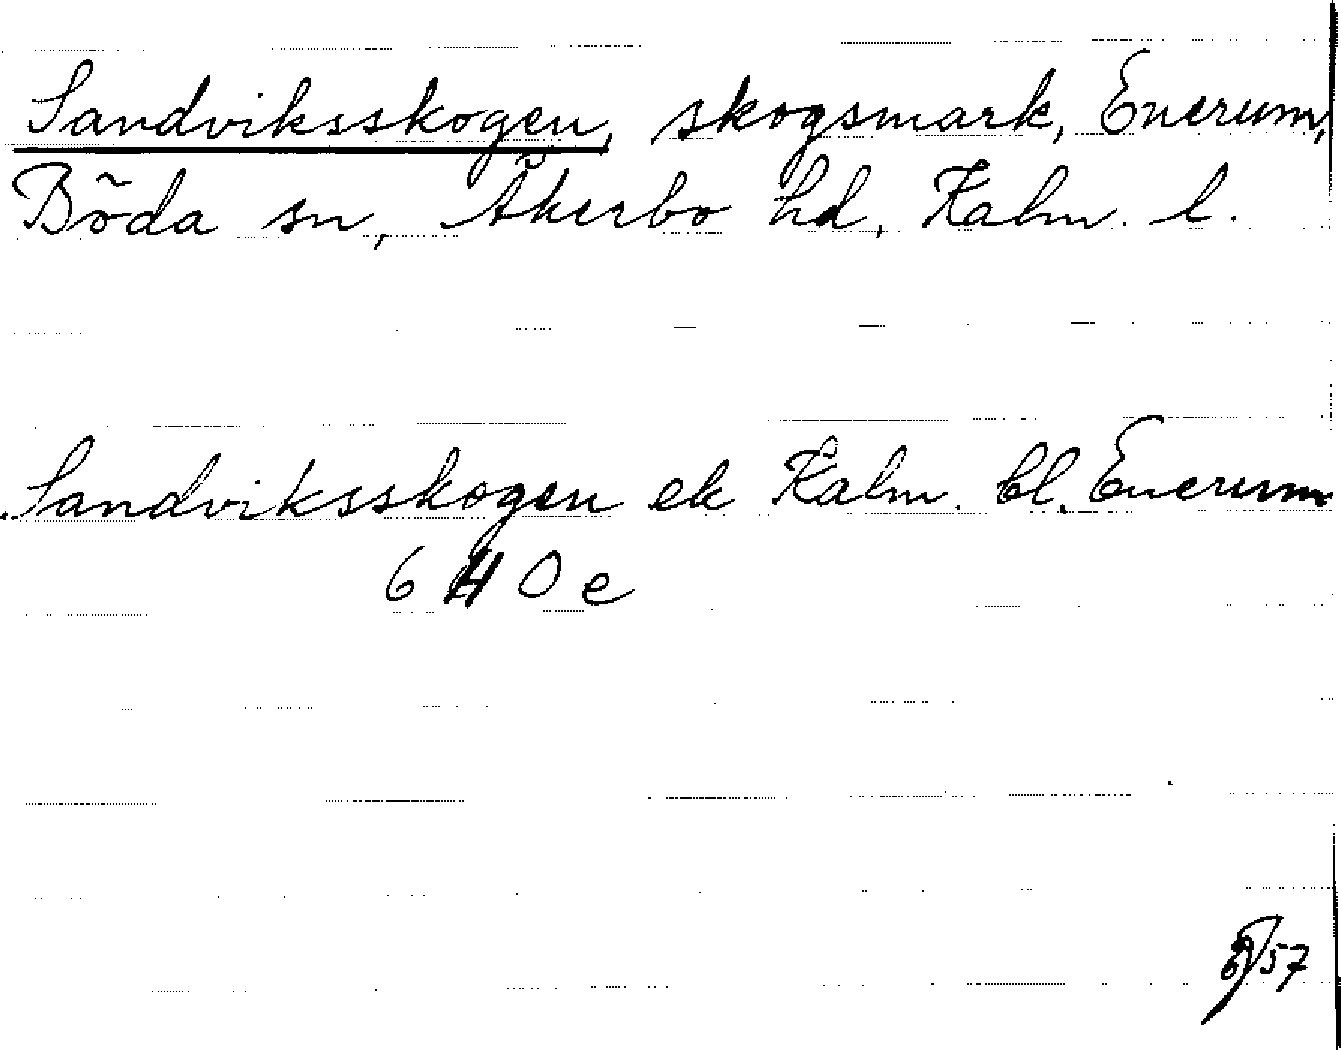 Sandviksskogen, skogsmark, Enerum,
Böda sn, Åkerbo hd, Kalm. l.
Sandviksskogen ek Kalm. bl. Enerum
6 4 0 e
57